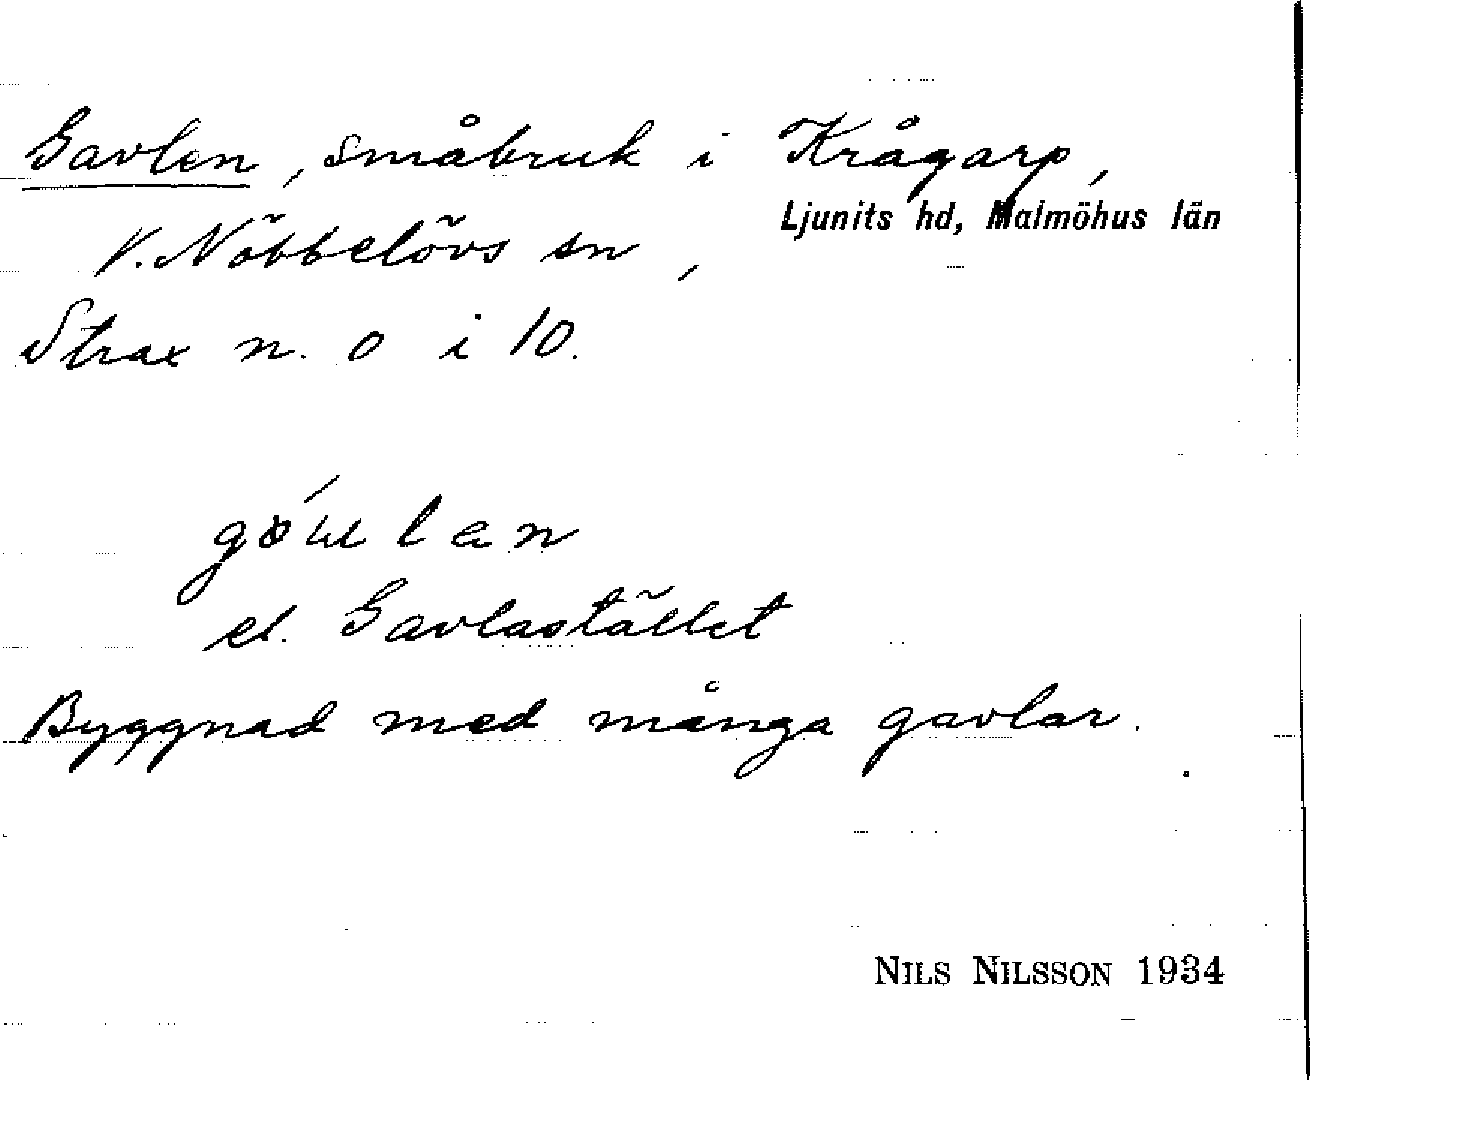 Gavlen, småbruk i Krågarp,
Ljunits hd, Malmöhus län
V. Nöbbelövs sn,
Strax n. o i 10.
el. Gavlastället
Byggnad med många gavlar.
NILS NILSSON 1934